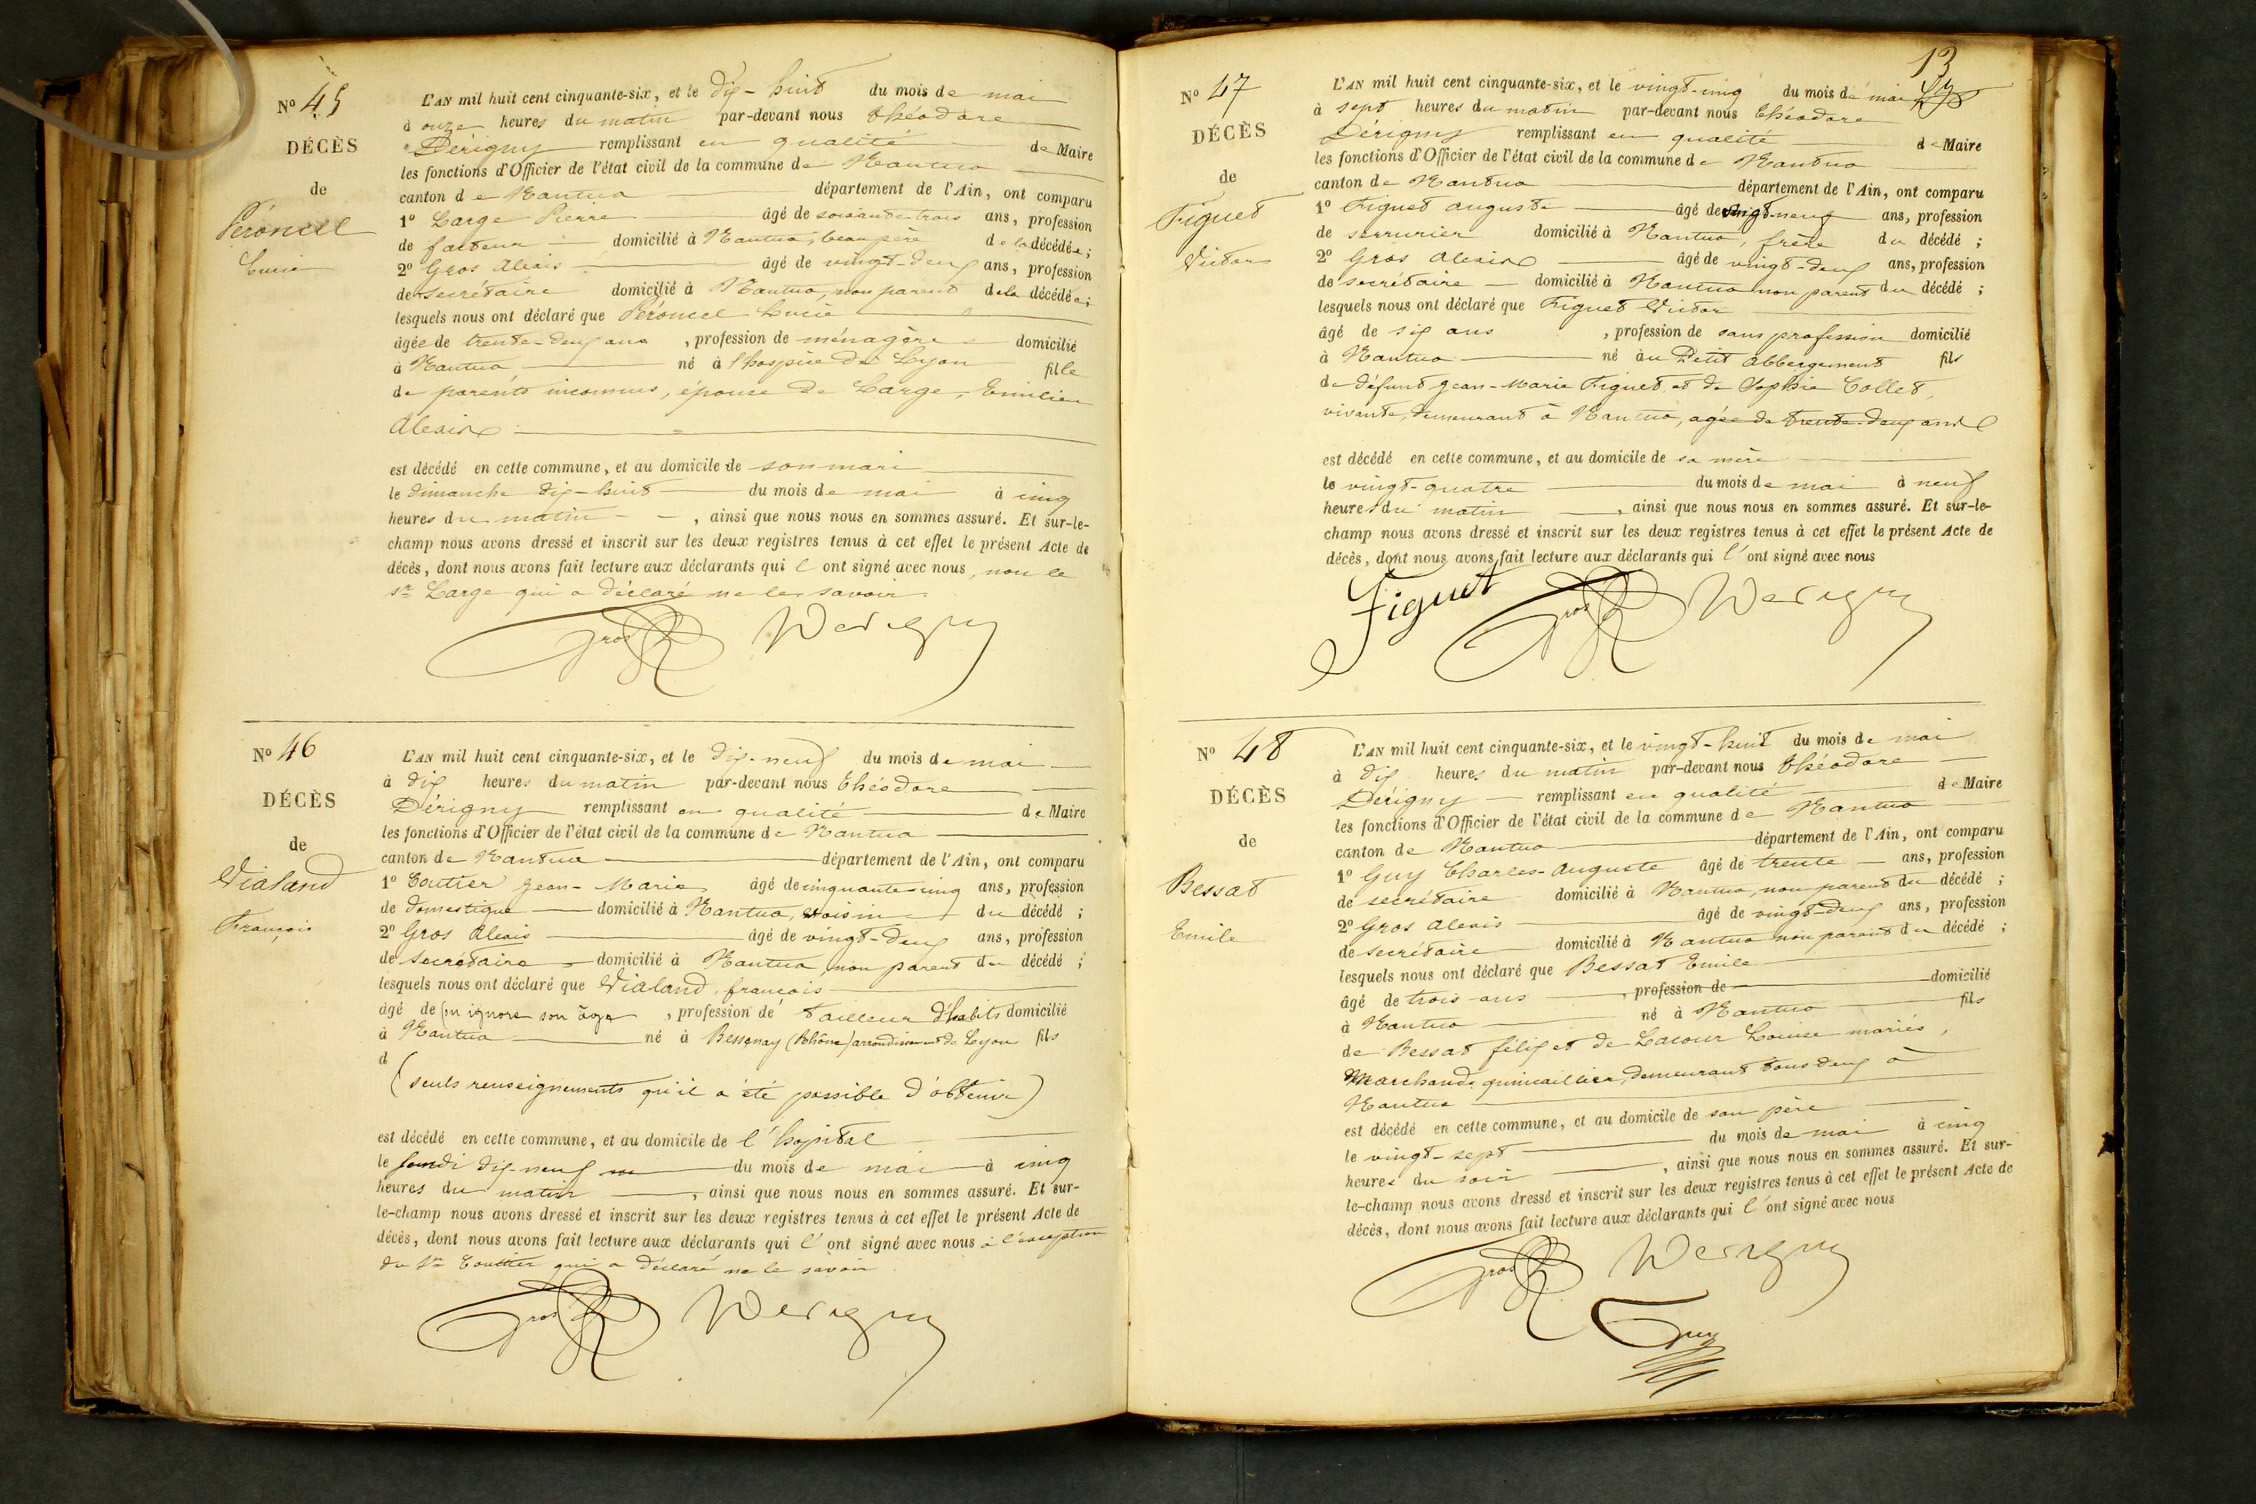 Nº 45
DÉCÈS
de
Péroncel
Lucie
L'AN mil huit cent cinquante-six, et le dix-huit du mois de mai
à onze heures du matin par-devant nous théodore
Dérigny remplissant en qualité de Maire
les fonctions d'Officier de l'état civil de la commune de Nantua
canton de Nantua département de l'Ain, ont comparu
1º Large Pierre âgé de soixante-trois ans, profession
de facteur domicilié à Nantua, beau père de la décédée;
2º Gros Alexis âgé de vingt-deux ans, profession
de secrétaire domicilié à Nantua, non parent de la décédée;
lesquels nous ont déclaré que Péroncel Lucie
âgée de trente-deux ans, profession de ménagère domicilié
à Nantua né à l'hospice de Lyon fille
de parents inconnus, épouse de Large, Emilien
Alexis
est décédé en cette commune, et au domicile de son mari
le dimanche dix-huit du mois de mai à cinq
heures du matin, ainsi que nous nous en sommes assuré. Et sur-le-
champ nous avons dressé et inscrit sur les deux registres tenus à cet effet le présent Acte de
décès, dont nous avons fait lecture aux déclarants qui l'ont signé avec nous, non le
sr Large qui a déclaré ne le savoir
Gros Derigny
Nº 46
DÉCÈS
de
Vialand
François
L'AN mil huit cent cinquante-six, et le dix-neuf du mois de mai
à dix heures du matin par-devant nous théodore
Dérigny remplissant en qualité de Maire
les fonctions d'Officier de l'état civil de la commune de Nantua
canton de Nantua département de l'Ain, ont comparu
1º Coutier Jean-Marie âgé de cinquante-cinq ans, profession
de domestique domicilié à Nantua, voisin du décédé;
2º Gros Alexis âgé de vingt-deux ans, profession
de secrétaire domicilié à Nantua, non parent du décédé;
lesquels nous ont déclaré que Vialand, françois
âgé de (on ignore son âge, profession de tailleur d'habits domicilié
à Nantua né à Bessenay (Rhône) arrondissement de Lyon fils
d
(seuls renseignements qu'il a été possible d'obtenir)
est décédé en cette commune, et au domicile de l'hopital
le lundi dix-neuf du mois de mai à cinq
heures du matin, ainsi que nous nous en sommes assuré. Et sur-
le-champ nous avons dressé et inscrit sur les deux registres tenus à cet effet le présent Acte de
décès, dont nous avons fait lecture aux déclarants qui l'ont signé avec nous à l'exception
du sr Coutier qui a déclaré ne le savoir
Gros Derigny
13
Nº 47
DÉCÈS
de
Figuet
Victor
L'AN mil huit cent cinquante-six, et le vingt-cinq du mois de mai
à sept heures du matin par-devant nous théodore
Dérigny remplissant en qualité de Maire
les fonctions d'Officier de l'état civil de la commune de Nantua
canton de Nantua département de l'Ain, ont comparu
1º Figuet auguste âgé de vingt-neuf ans, profession
de serrurier domicilié à Nantua, frère du décédé;
2º Gros Alexis âgé de vingt-deux ans, profession
de secrétaire domicilié à Nantua non parent du décédé;
lesquels nous ont déclaré que Figuet Victor
âgé de six ans, profession de sans profession domicilié
à Nantua né au Petit Abbergement fils
de défunt Jean-Marie Figuet et de Sophie Collet,
vivante, demeurant à Nantua, agée de trente-deux ans
est décédé en cette commune, et au domicile de sa mère
le vingt-quatre du mois de mai à neuf
heures du matin, ainsi que nous nous en sommes assuré. Et sur-le-
champ nous avons dressé et inscrit sur les deux registres tenus à cet effet le présent Acte de
décès, dont nous avons fait lecture aux déclarants qui l'ont signé avec nous
Figuet Gros Derigny
Nº 48
DÉCÈS
de
Bessat
Emile
L'AN mil huit cent cinquante-six, et le vingt-huit du mois de mai
à dix heures du matin par-devant nous théodore
Dérigny remplissant en qualité de Maire
les fonctions d'Officier de l'état civil de la commune de Nantua
canton de Nantua département de l'Ain, ont comparu
1º Guy Charles-Auguste âgé de trente ans, profession
de secrétaire domicilié à Nantua, non parent du décédé;
2º Gros Alexis âgé de vingt-deux ans, profession
de secrétaire domicilié à Nantua non parent du décédé;
lesquels nous ont déclaré que Bessat Emile
âgé de trois ans, profession de domicilié
à Nantua né à Nantua fils
de Bessat félix et de Lacour Louise mariés,
Marchands quincaillier, demeurant tous deux à
Nantua
est décédé en cette commune, et au domicile de son père
le vingt-sept du mois de mai à cinq
heures du soir, ainsi que nous nous en sommes assuré. Et sur-
le-champ nous avons dressé et inscrit sur les deux registres tenus à cet effet le présent Acte de
décès, dont nous avons fait lecture aux déclarants qui l'ont signé avec nous
Gros Derigny
Guy